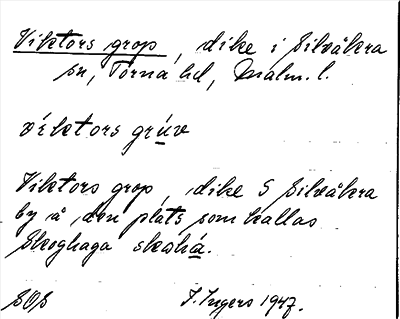 Viktors grop, dike i Silvåkra
sn, Torna hd, Malm. l.
víktors grúv
Viktors grop, dike S Silvåkra
by å den plats som kallas
Skoghaga
I. Ingers 1947.